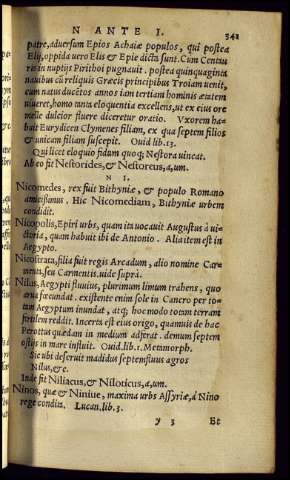 N ANTE I. 342
patre, aduersum Epios Achaiæ populos, qui postea
Elij, oppida uero Elis & Epie dicta sunt. Cum Centau
ris in nuptijs Pirithoi pugnauit. postea quinquaginta
nauibus cũ reliquis Græcis principibus Troiam uenit,
cum natus ducẽtos annos iam tertiam hominis ætatem
uiueret, homo unus eloquentia excellens, ut ex eius ore
melle dulcior fluere diceretur oratio. Vxorem ha-
buit Eurydicen Clymenes filiam, ex qua septem filios
& unicam filiam suscepit. Ouid lib.13.
Qui licet eloquio fidum quoq; Nestora uincat.
Ab eo fit Nestorides, & Nestoreus, a, um.
N I.
Nicomedes, rex fuit Bithyniæ, & populo Romano
amicissimus. Hic Nicomediam, Bithyniæ urbem
condidit.
Nicopolis, Epiri urbs, quam ita uocauit Augustus à ui-
ctoria, quam habuit ibi de Antonio. Alia item est in
Aegypto.
Nicostrata, filia fuit regis Arcadum, alio nomine Car
mentis, seu Carmentis. uide suprà.
Nilus, Aegypti fluuius, plurimum limum trahens, quo
arua fœcundat. existente enim sole in Cancro per to-
tam Aegyptum inundat, atq; hoc modo totam terram
fertilem reddit. Incerta est eius origo, quamuis de hac
Perottus quædam in medium adferat. demum septem
ostijs in mare influit. Ouid. lib.1. Metamorph.
Sic ubi deseruit madidos septemfluus agros
Nilus, &c.
Inde fit Niliacus, & Niloticus, a, um.
Ninos, quæ & Niniue, maxima urbs Assyriæ, à Nino
rege condita. Lucan. lib.3.
y 3 Et